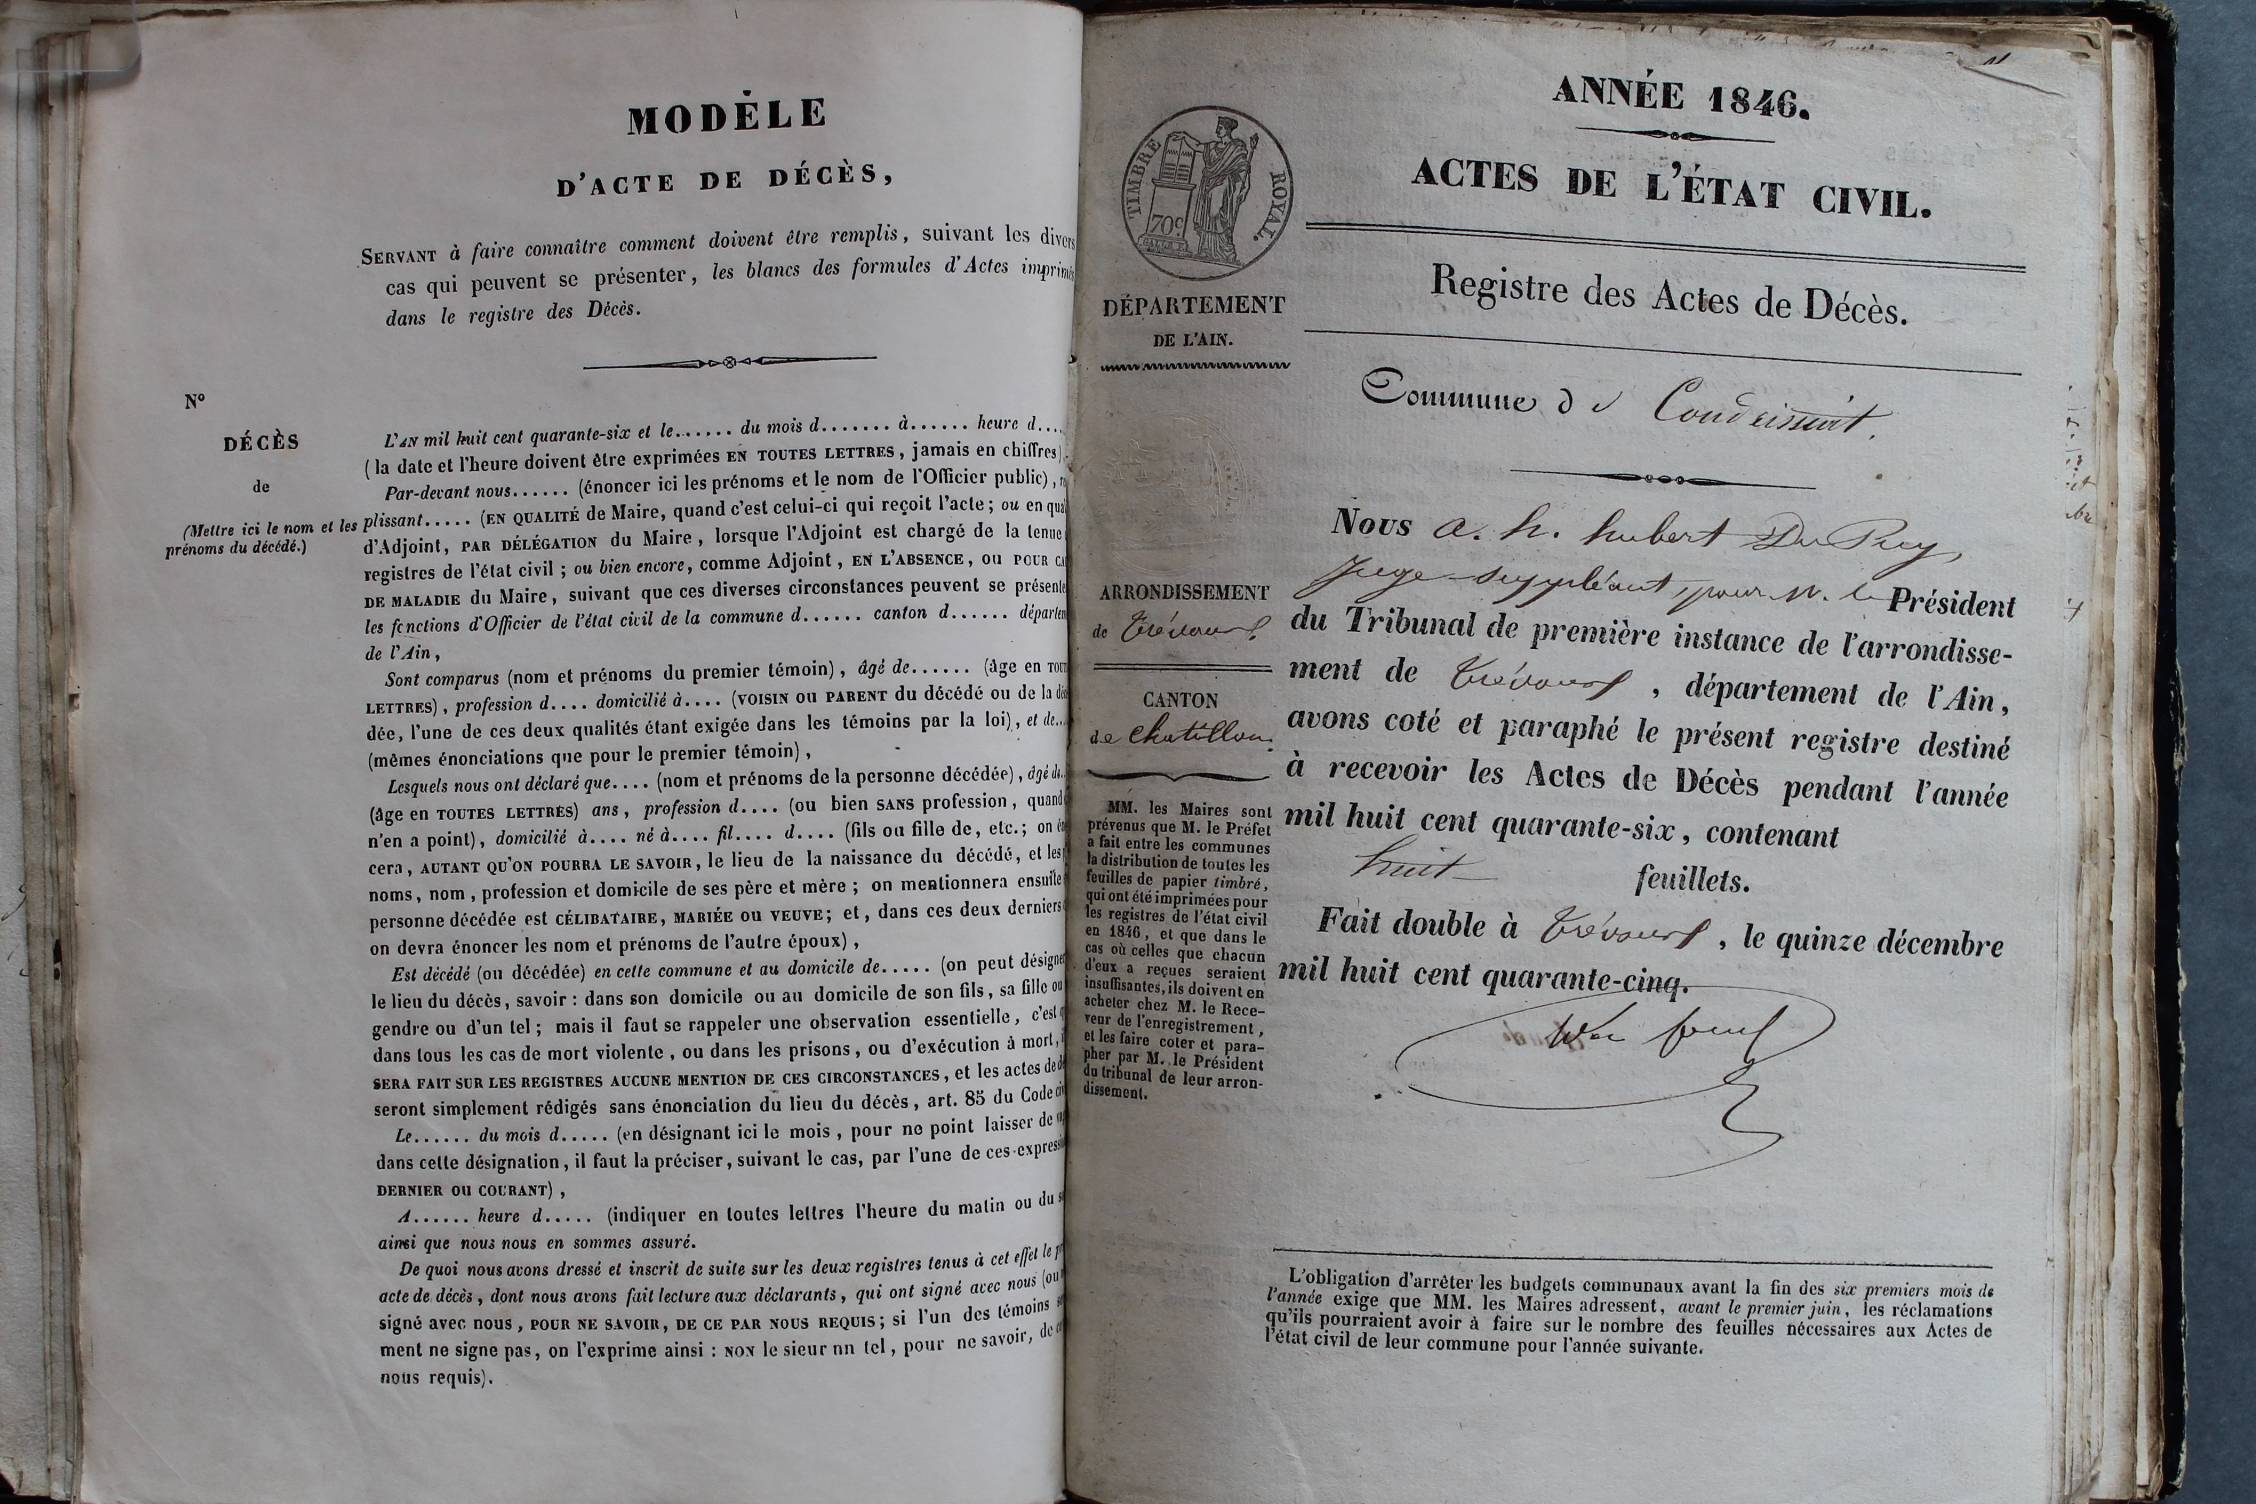 MODÈLE
D'ACTE DE DÉCÈS,
SERVANT à faire connaître comment doivent être remplis, suivant les divers
cas qui peuvent se présenter, les blancs des formules d'Actes imprimés
dans le registre des Décès.
Nº
DÉCÈS
de
(Mettre ici le nom et les
prénoms du décédé.)
L'AN mil huit cent quarante-six et le...... du mois d....... à...... heure d....
(la date et l'heure doivent être exprimées EN TOUTES LETTRES, jamais en chiffres).
Par-devant nous...... (énoncer ici les prénoms et le nom de l'Officier public),
plissant..... (EN QUALITÉ de Maire, quand c'est celui-ci qui reçoit l'acte; ou en qua
d'Adjoint, PAR DÉLÉGATION du Maire, lorsque l'Adjoint est chargé de la tenue
registres de l'état civil; ou bien encore, comme Adjoint, EN L'ABSENCE, OU POUR CA
DE MALADIE du Maire, suivant que ces diverses circonstances peuvent se présente
les fonctions d'Officier de l'état civil de la commune d...... canton d...... départem
de l'Ain,
Sont comparus (nom et prénoms du premier témoin), âgé de...... (âge en TOUT
LETTRES), profession d.... domicilié à.... (VOISIN OU PARENT du décédé ou de la dé
dée, l'une de ces deux qualités étant exigée dans les témoins par la loi), et de...
(mêmes énonciations que pour le premier témoin),
Lesquels nous ont déclaré que.... (nom et prénoms de la personne décédée), âgé de..
(âge en TOUTES LETTRES) ans, profession d.... (ou bien SANS profession, quand
n'en a point), domicilié à.... né à.... fil.... d.... (fils ou fille de, etc.; on én
cera, AUTANT QU'ON POURRA LE SAVOIR, le lieu de la naissance du décédé, et les
noms, nom, profession et domicile de ses père et mère; on mentionnera ensuite
personne décédée est CÉLIBATAIRE, MARIÉE OU VEUVE; et, dans ces deux derniers
on devra énoncer les nom et prénoms de l'autre époux),
Est décédé (ou décédée) en cette commune et au domicile de..... (on peut désigner
le lieu du décès, savoir: dans son domicile ou au domicile de son fils, sa fille ou
gendre ou d'un tel; mais il faut se rappeler une observation essentielle, c'est q
dans tous les cas de mort violente, ou dans les prisons, ou d'exécution à mort, i
SERA FAIT SUR LES REGISTRES AUCUNE MENTION DE CES CIRCONSTANCES, et les actes de dé
seront simplement rédigés sans énonciation du lieu du décès, art. 85 du Code civ
Le...... du mois d..... (en désignant ici le mois, pour ne point laisser de
dans cette désignation, il faut la préciser, suivant le cas, par l'une de ces expressi
DERNIER OU COURANT),
A...... heure d..... (indiquer en toutes lettres l'heure du matin ou du s
ainsi que nous nous en sommes assuré.
De quoi nous avons dressé et inscrit de suite sur les deux registres tenus à cet effet le p
acte de décès, dont nous avons fait lecture aux déclarants, qui ont signé avec nous (ou
signé avec nous, POUR NE SAVOIR, DE CE PAR NOUS REQUIS; si l'un des témoins
ment ne signe pas, on l'exprime ainsi: NON le sieur un tel, pour ne savoir, de c
nous requis).
TIMBRE ROYAL.
70c
DÉPARTEMENT
DE L'AIN.
ARRONDISSEMENT
de Trévoux
CANTON
de Chatillon
MM. les Maires sont
prévenus que M. le Préfet
a fait entre les communes
la distribution de toutes les
feuilles de papier timbré,
qui ont été imprimées pour
les registres de l'état civil
en 1846, et que dans le
cas où celles que chacun
d'eux a reçues seraient
insuffisantes, ils doivent en
acheter chez M. le Rece-
veur de l'enregistrement,
et les faire coter et para-
pher par M. le Président
du tribunal de leur arron-
dissement.
ANNÉE 1846.
ACTES DE L'ÉTAT CIVIL.
Registre des Actes de Décès.
Commune de Condeissiat.
Nous a. h. hubert Du Puy,
Juge suppléant, pour M. le Président
du Tribunal de première instance de l'arrondisse-
ment de Trévoux, département de l'Ain,
avons coté et paraphé le présent registre destiné
à recevoir les Actes de Décès pendant l'année
mil huit cent quarante-six, contenant
huit feuillets.
Fait double à Trévoux, le quinze décembre
mil huit cent quarante-cinq.
L'obligation d'arrêter les budgets communaux avant la fin des six premiers mois de
l'année exige que MM. les Maires adressent, avant le premier juin, les réclamations
qu'ils pourraient avoir à faire sur le nombre des feuilles nécessaires aux Actes de
l'état civil de leur commune pour l'année suivante.